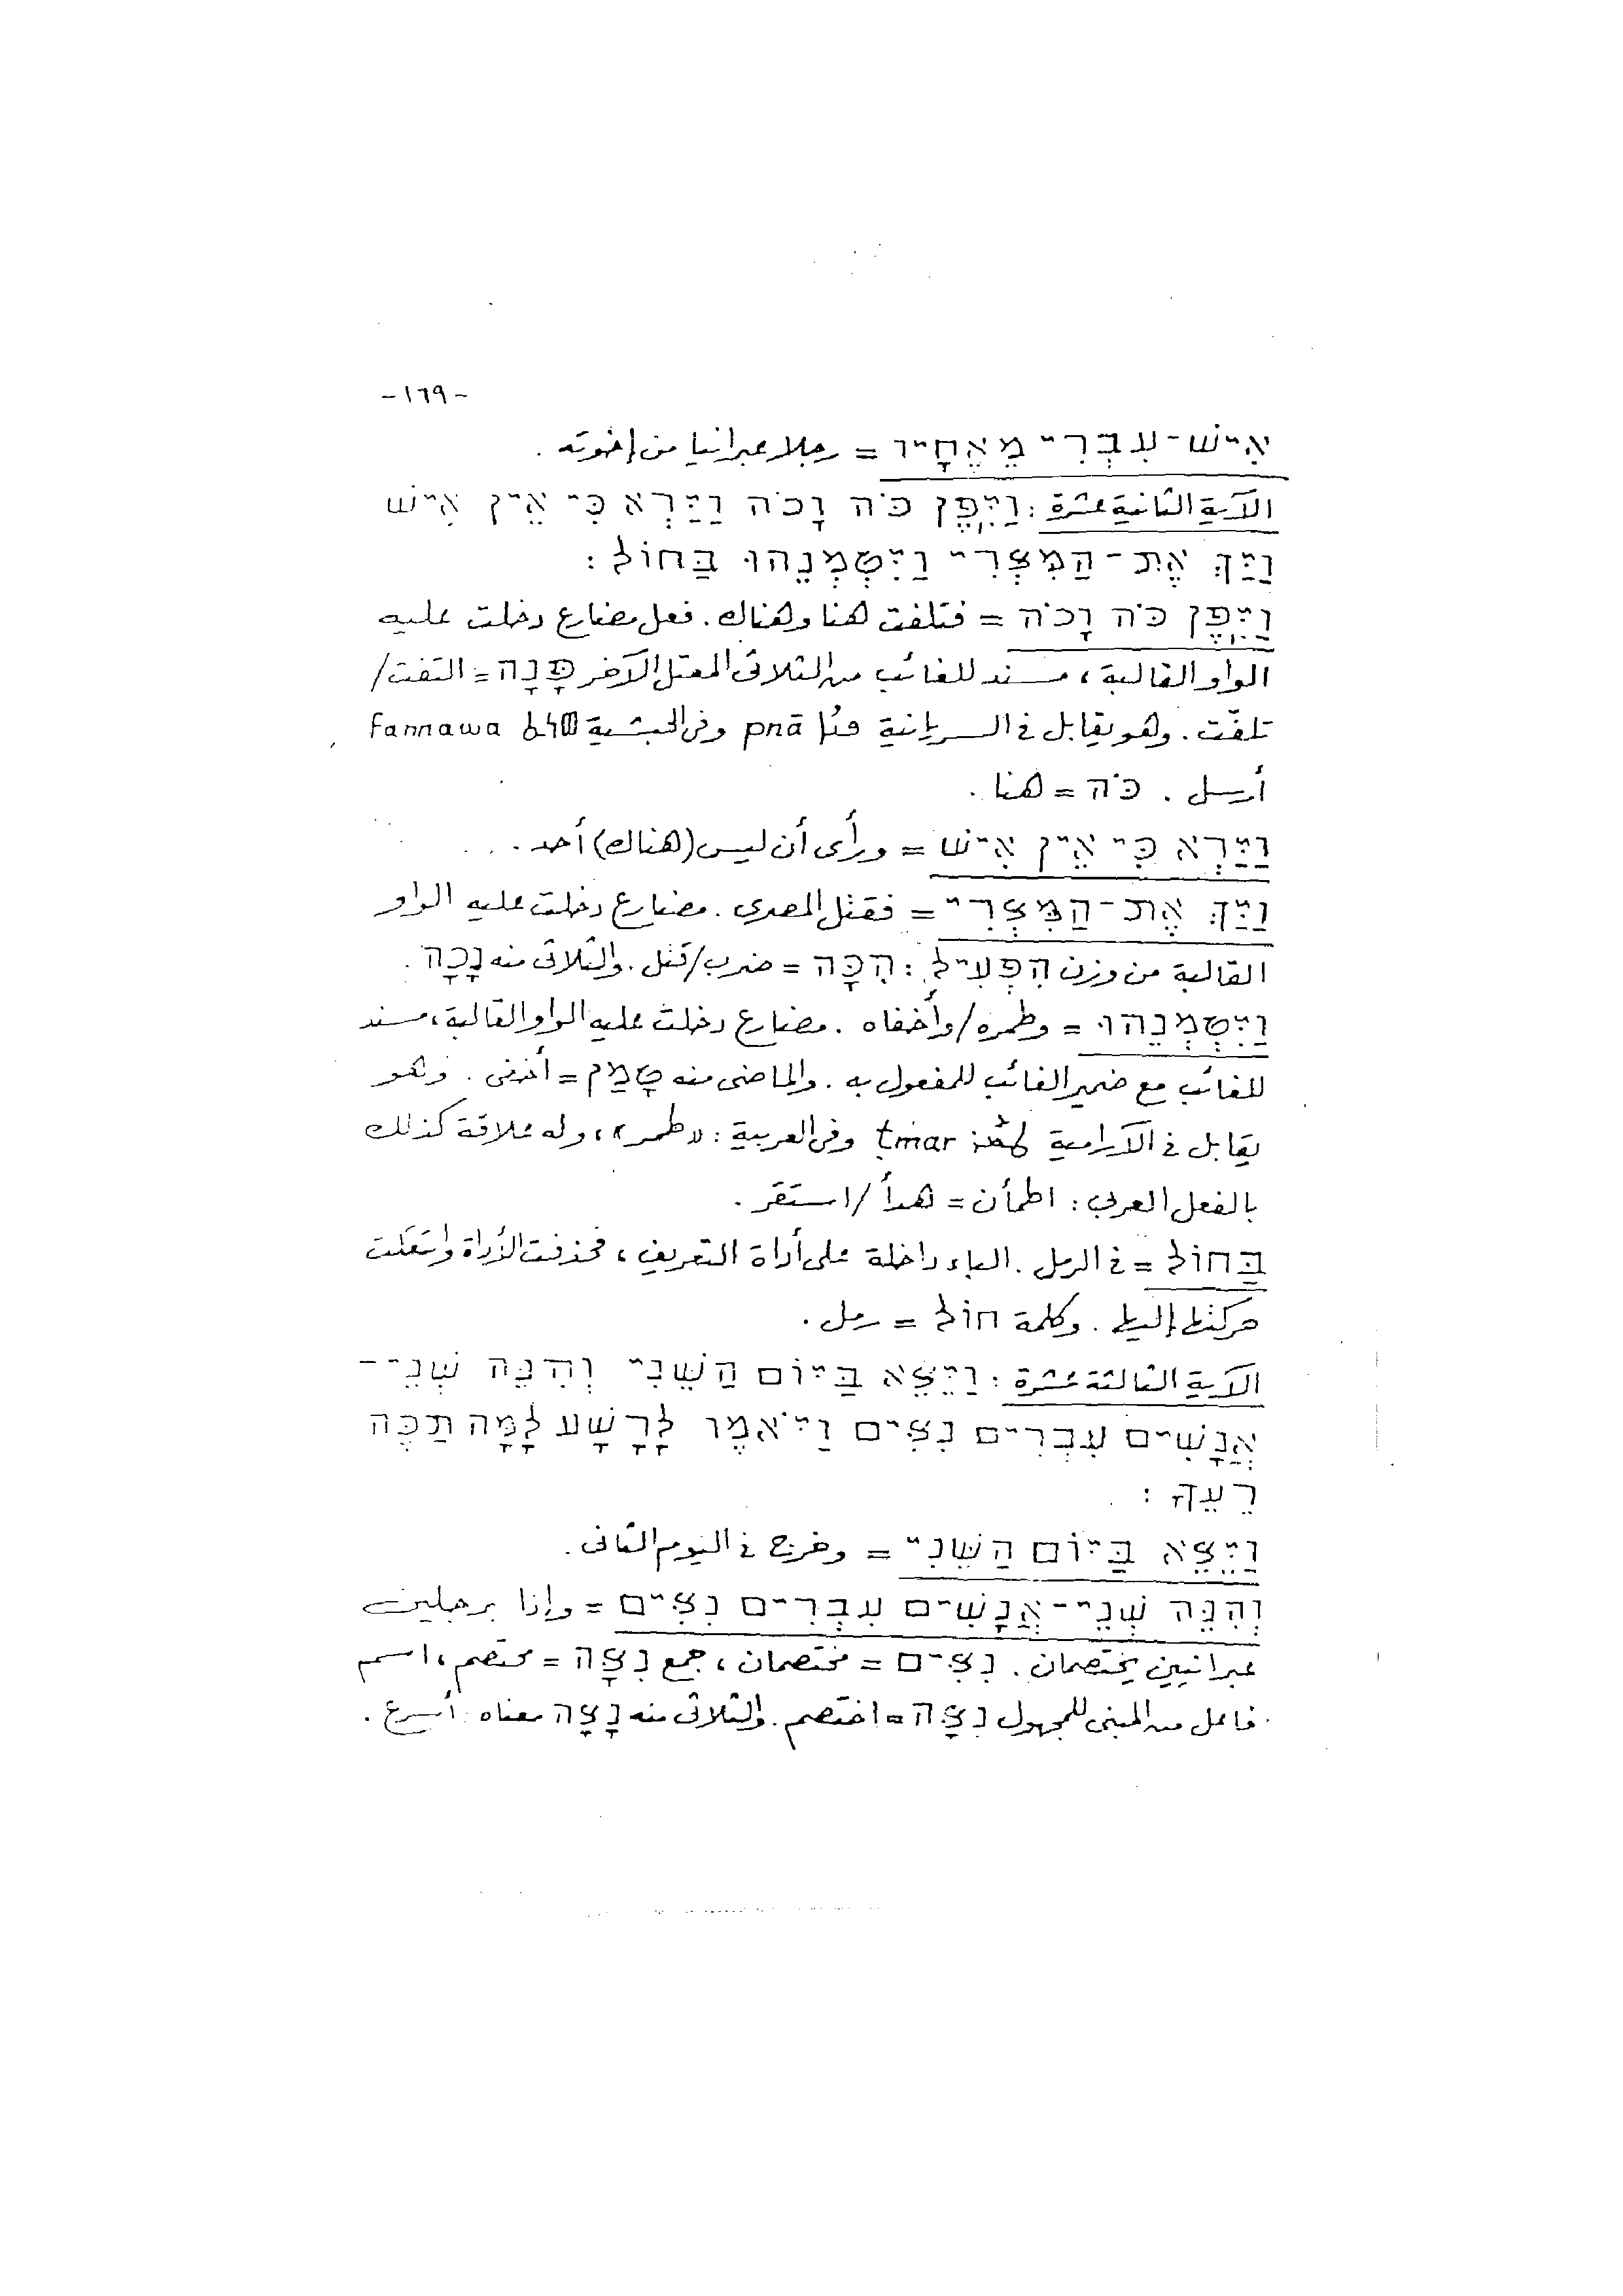 -١٦٩-
אִישׁ-עִבְרִי מֵאֶחָיו = رجلا عبرانيا من إخوته .
الآية الثانية عشرة : וַיִּפֶן כֹּה וָכֹה וַיַּרְא כִּי אֵין אִישׁ
וַיַּךְ אֶת-הַמִּצְרִי וַיִּטְמְנֵהוּ בַּחוֹל :
וַיִּפֶן כֹּה וָכֹה = فتلفت هنا وهناك . فعل مضارع دخلت عليه
الواو القالبة ، مسند للغائب من الثلاثى المعتل الآخر פָּנָה = التفت /
تلفّت . وهو يقابل فى السريانية ܦܢܐ pnā وفى الحبشية ፈነወ fannawa
أرسل . כֹּה = هنا .
וַיַּרְא כִּי אֵין אִישׁ = ورأى أن ليس (هناك) أحد .
וַיַּךְ אֶת-הַמִּצְרִי = فقتل المصرى . مضارع دخلت عليه الواو
القالبة من وزن הִפְעִיל : הִכָּה = ضرب / قتل . والثلاثى منه נָכָה .
וַיִּטְמְנֵהוּ = وطمره / وأخفاه . مضارع دخلت عليه الواو القالبة ، مسند
للغائب مع ضمير الغائب للمفعول به . والماضى منه טָמַן = أخفى . وهو
يقابل فى الآرامية ܛܡܪ ṭmar وفى العربية : «طمر» ، وله علاقة كذلك
بالفعل العربى : اطمأن = هدأ / استقر .
בַּחוֹל = فى الرمل . الباء داخلة على أداة التعريف ، فحذفت الأداة وانتقلت
حركتها إليها . وكلمة חוֹל = رمل .
الآية الثالثة عشرة : וַיֵּצֵא בַּיּוֹם הַשֵּׁנִי וְהִנֵּה שְׁנֵי-
אֲנָשִׁים עִבְרִים נִצִּים וַיֹּאמֶר לָרָשָׁע לָמָּה תַכֶּה
רֵעֶךָ :
וַיֵּצֵא בַּיּוֹם הַשֵּׁנִי = وخرج فى اليوم الثانى .
וְהִנֵּה שְׁנֵי-אֲנָשִׁים עִבְרִים נִצִּים = وإذا برجلين
عبرانيين يختصمان . נִצִּים = مختصمان ، جمع נִצָּה = مختصم ، اسم
فاعل من المبنى للمجهول נִצָּה = اختصم . والثلاثى منه נָצָה معناه : أسرع .